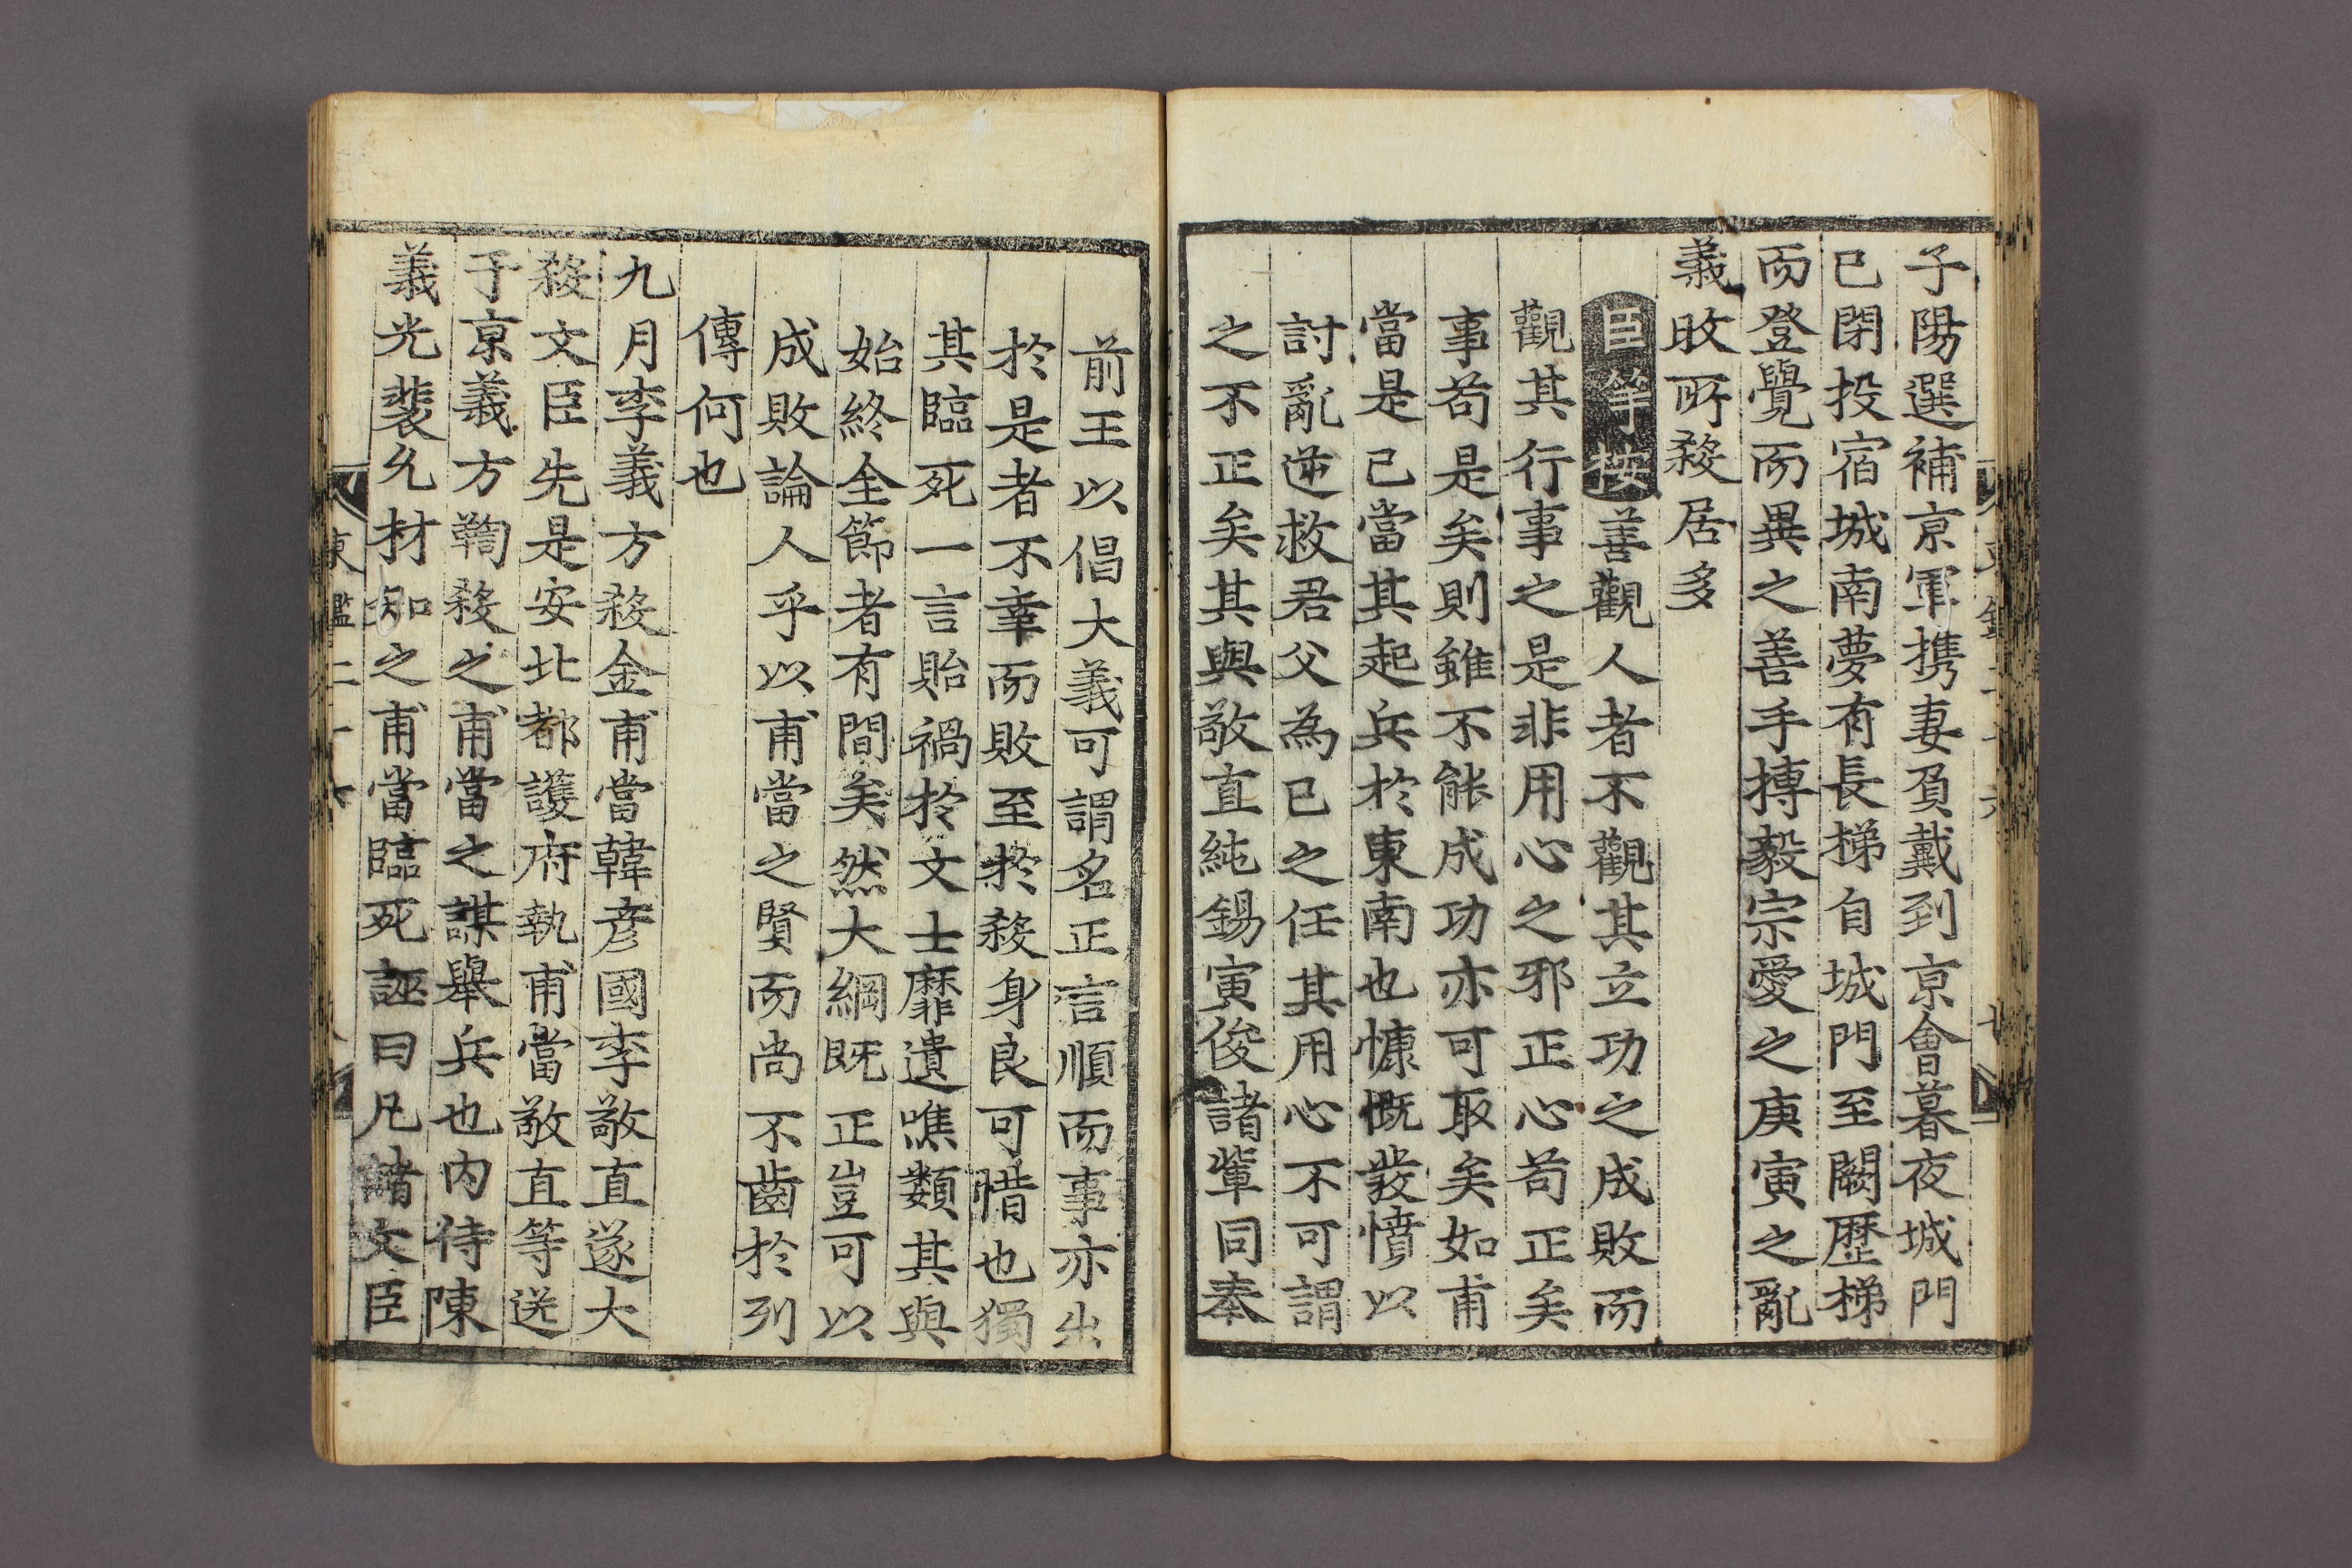 子陽選補京軍携妻負戴到京會暮夜城門
已閉投宿城南夢有長梯自城門至闕歷梯
而登覺而異之善手搏毅宗愛之庚寅之亂
義旼所殺居多
臣等按善觀人者不觀其立功之成敗而
觀其行事之是非用心之邪正心苟正矣
事苟是矣則雖不能成功亦可取矣如甫
當是已當其起兵於東南也慷慨發憤以
討亂逆救君父為已之任其用心不可謂
之不正矣其與敬直純錫寅俊諸輩同奉
前王以倡大義可謂名正言順而事亦出
於是者不幸而敗至於殺身良可惜也獨
其臨死一言貽禍於文士靡遺噍類其與
始終全節者有間矣然大綱既正豈可以
成敗論人乎以甫當之賢而尚不齒於列
傳何也
九月李義方殺金甫當韓彦國李敬直遂大
殺文臣先是安北都護府執甫當敬直等送
于京義方鞫殺之甫當之謀舉兵也內侍陳
義光裴允材知之甫當臨死誣曰凡諸文臣
東鑑二十六